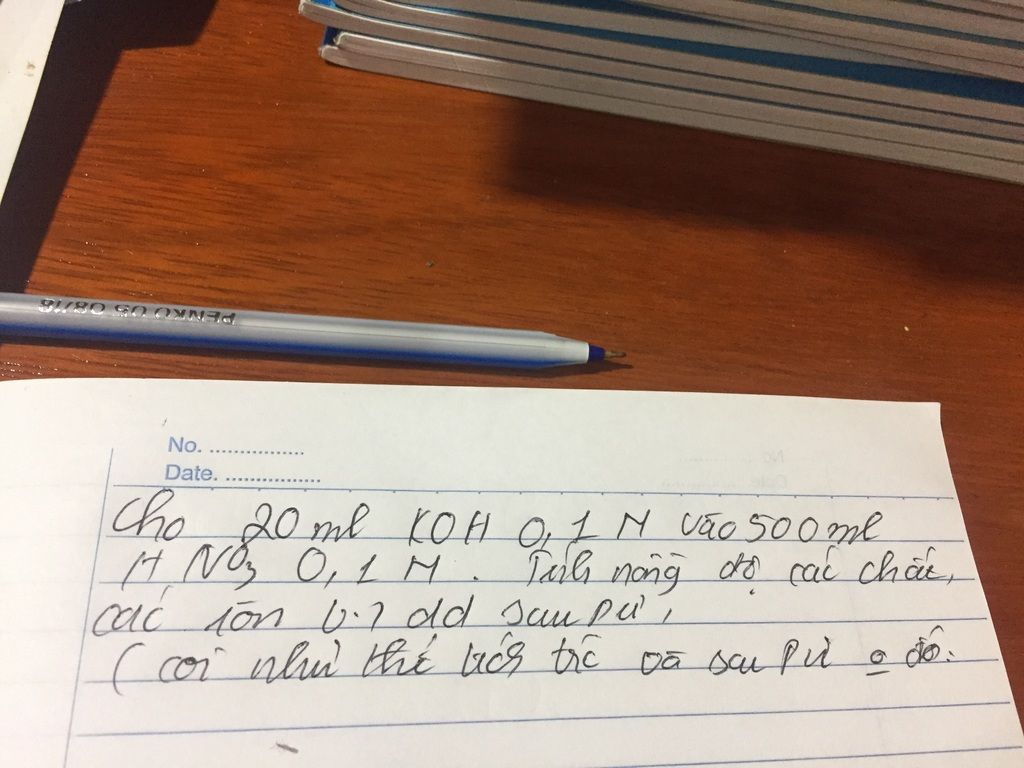 PENKO 05 08/18
No. ................
Date. ................
Cho 20 ml KOH 0,1 M vào 500 ml
HNO3 0,1 M. Tính nồng độ các chất,
các ion (.) dd sau pứ,
(coi như thể tích trc và sau pứ o đổi.